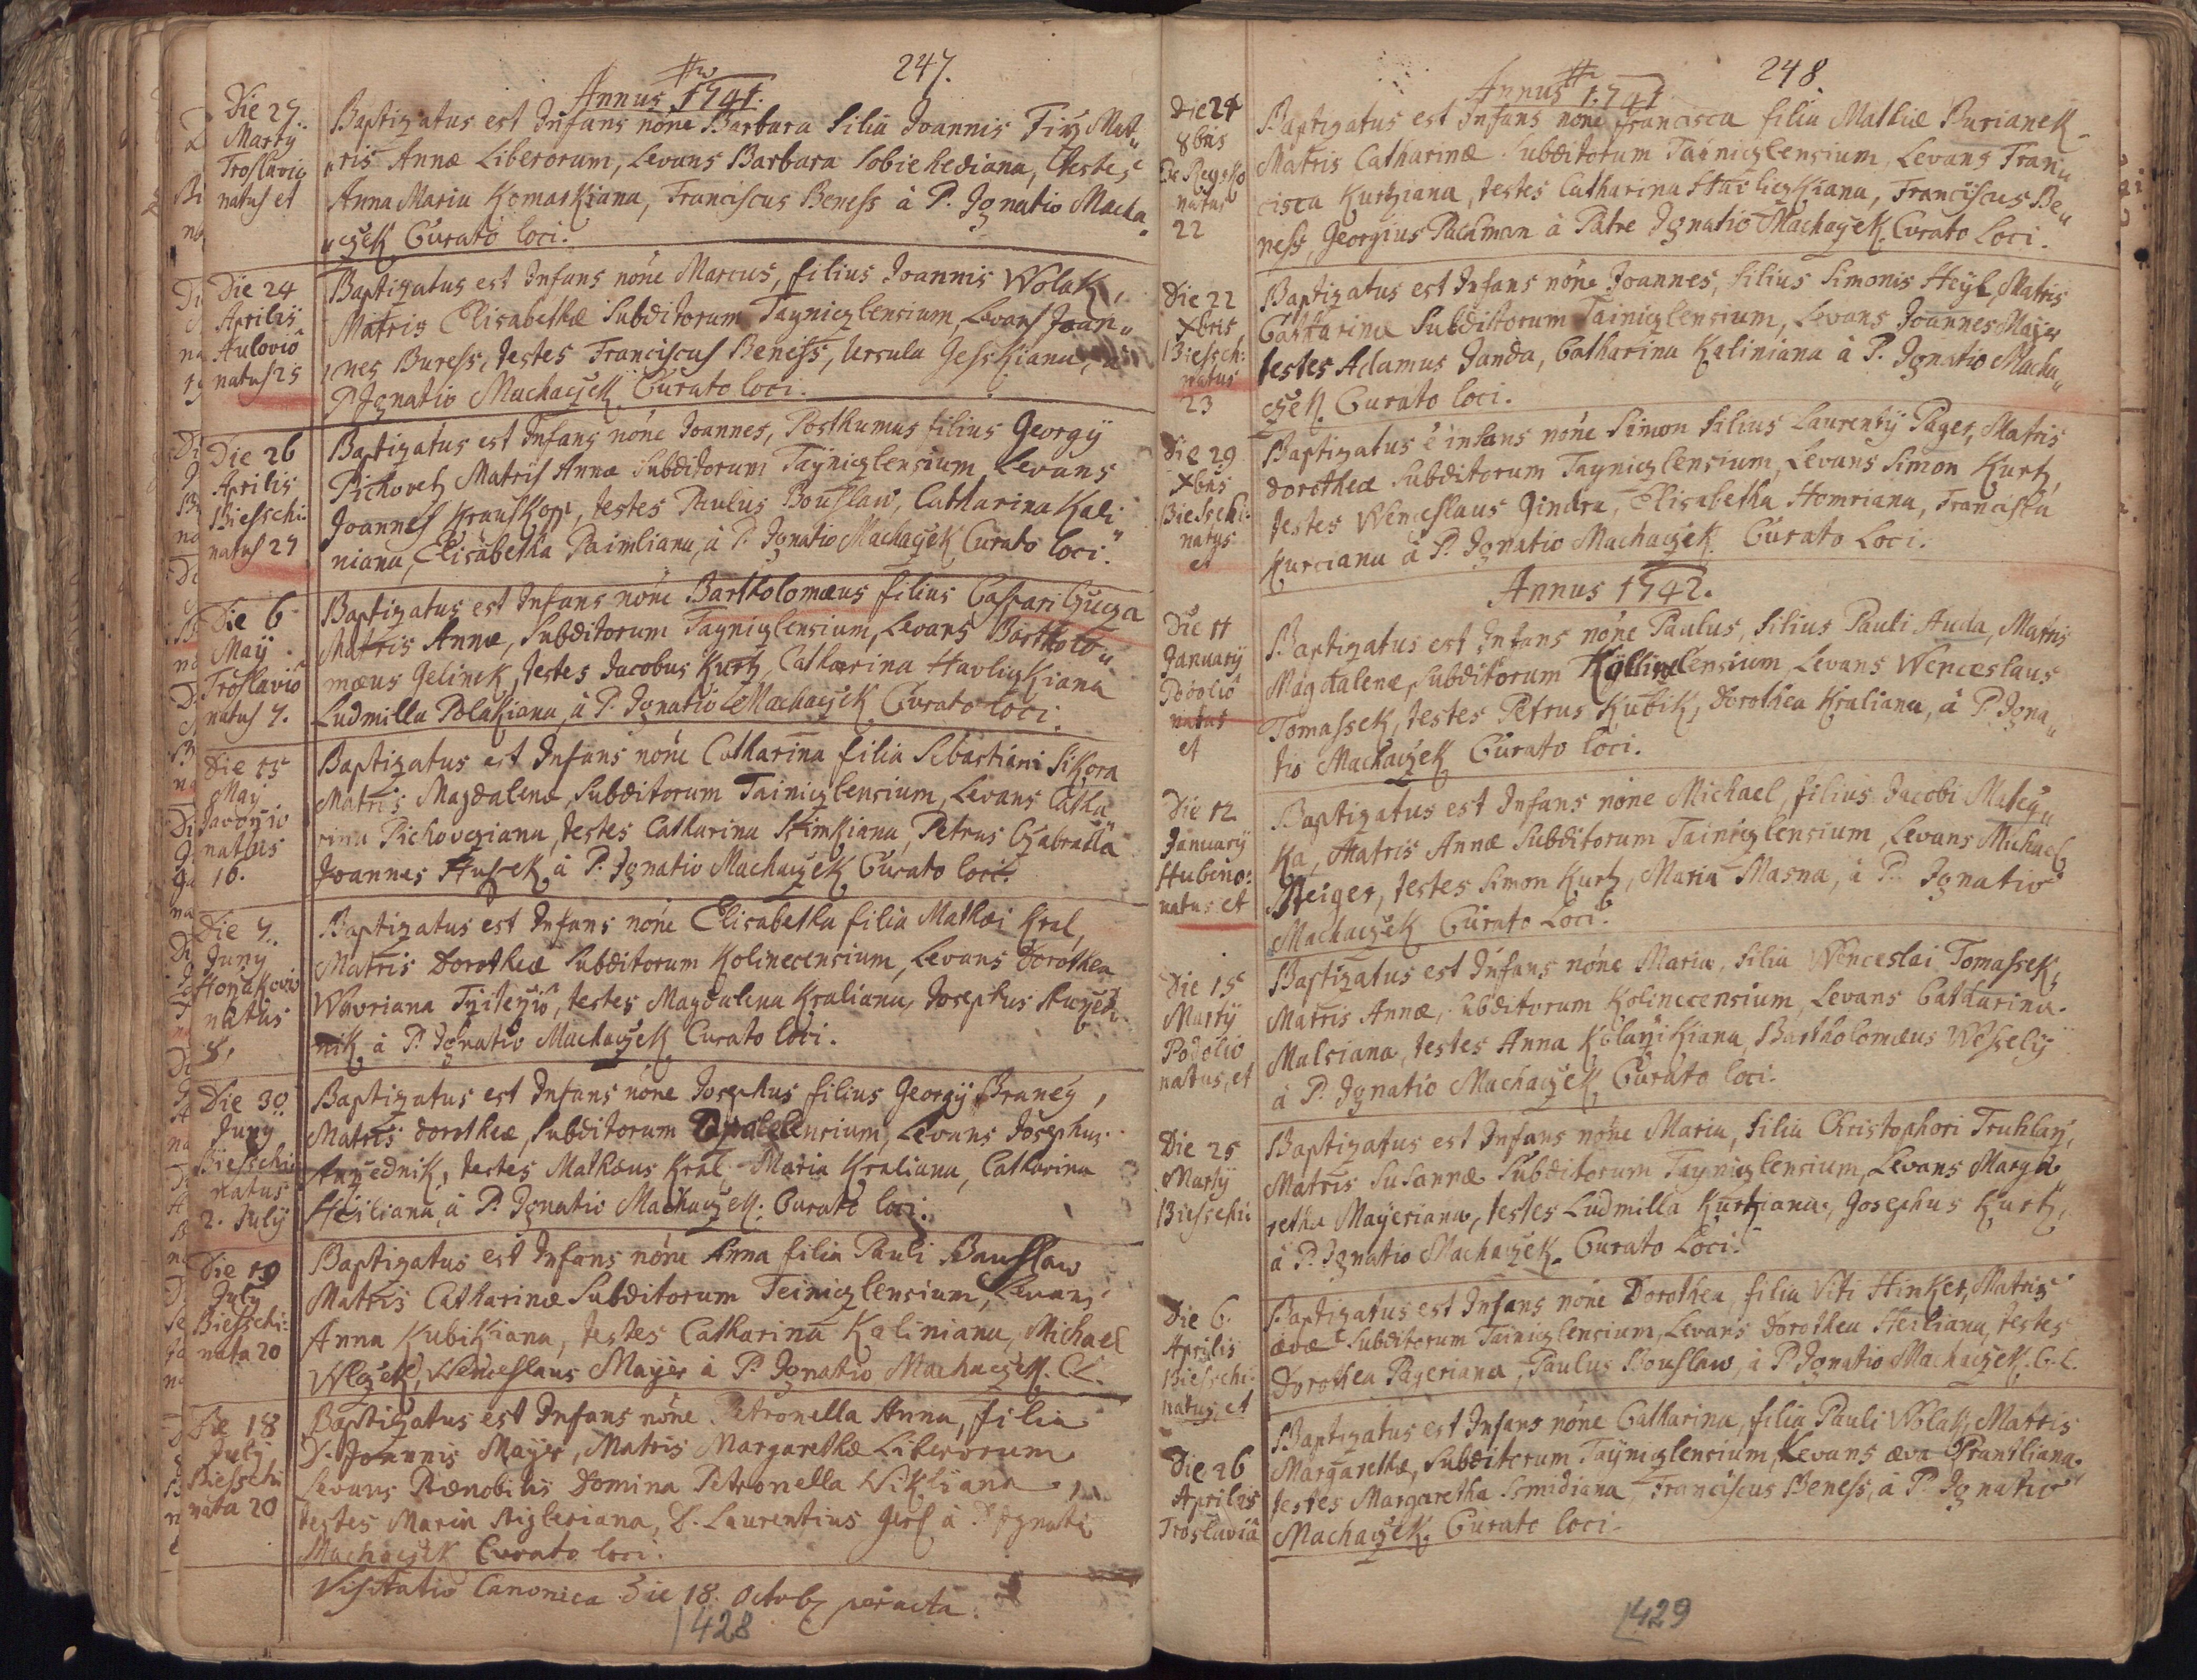 247.
Annus 1741.
Die 27.
Marty
natus et
Baptizatus est Infans nōne Barbara filia Joannis
ris Annæ Liberorum, Levans Barbara Sobiehediana, testes
Anna Maria Komarkiana, Franciscus Beness à P. Ignatio Macha
czek Curato loci.
Die 24
Aprilis
natus 25
Baptizatus est Infans nōne Marcus, filius Joannis Wolak,
Matris Elisabethæ Subditorum Tayniczlensium, Levans Joan„
nes Buress, testes Franciscus Beness, Ursula Jesskiana, à
P. Ignatio Machaczek Curato loci.
Die 26
Aprilis
Biesschi:
natus 27
Baptizatus est Infans nōne Joannes, Posthumus filius Georgÿ
Pichovetz Matris Annæ Subditorum Tayniczlensium Levans
Joannes Krauskopf, testes Paulus Bouslaw, Catharina Kali„
niana, Elisabetha Paimliana, à P. Ignatio Machaczek Curato loci.
Die 6
May
Troslavio
natus 7.
Baptizatus est Infans nōne Bartholomæus filius Caspari
Matris Annæ, Subditorum Tayniczlensium, Levans Bartholo„
mæus Gelinek, testes Jacobus Kurtz, Catharina Havliczkiana
Ludmilla Polakiana, à P. Ignatio Machaczek Curato loci.
Die 15
May
natus
16.
Baptizatus est Infans nōne Catharina filia Sebastiani Sikora
Matris Magdalenæ, Subditorum Tainiczlensium, Levans Catha„
rina Pichoveziana, testes Catharina Stimkiana, Petrus Czabradla
Joannes Hussek à P. Ignatio Machaczek Curato loci.
Die 7.
Juny
natus
8.
Baptizatus est Infans nōne Elisabetha filia Mathæi Kral,
Matris Dorotheæ Subditorum Kolinecensium, Levans Dorothea
Wavriana testes Magdalena Kraliana, Josephus
nik à P. Ignatio Machaczek Curato loci.
Die 30
Juny
Biesschi:
natus
2. July
Baptizatus est Infans nōne Josephus filius Georgÿ Braney,
Matris Dorotheæ, Subditorum Levans Josephus
testes Mathæus Kral, Maria Kraliana, Catharina
Heiliana, à P. Ignatio Machaczek. Curato loci.
Die 19
July
Biesschi:
nata 20
Baptizatus est Infans nōne Anna filia Pauli Bauslaw
Matris Catharinæ Subditorum Teiniczlensium, Levans
Anna Kubikiana, testes Catharina Kaliniana, Michael
Wlczek, Wenceslaus Mayer à P. Ignatio Machaczek. C.L.
Die 18
July
Biesschi
nata 20
Baptizatus est Infans nōne Petronella Anna, filia
D. Joannis Mayer, Matris Margarethæ Liberorum
Levans Prænobilis Domina Petronella Wikliana,
testes Maria Rigleriana, D. Laurentius Gerl à P. Ignatio
Machaczek Curato loci.
Visitatio Canonica die 18. Octobr peracta.
428
248.
Annus 1741
Die 24
8bris
natus
22
Baptizatus est Infans nōne Francisca filia Mathiæ Burianek
Matris Catharinæ Subditorum Tainiczlensium, Levans Fran„
cisca Kurtziana, testes Catharina Havliczkiana, Franciscus Be„
ness, Georgius Pachman à Patre Ignatio Machaczek. Curato Loci.
Die 22
Xbris
Biessch:
natus
23
Baptizatus est Infans nōne Joannes, filius Simonis Heyl, Matris
Catharinæ Subditorum Tainiczlensium, Levans Joannes Mayer
testes Adamus Janda, Catharina Kaliniana à P. Ignatio Macha„
czek. Curato loci.
Die 29
Xbris
Biesschi:
natus
et
Baptizatus ē infans nōne Simon filius Laurentÿ Pager, Matris
Dorotheæ Subditorum Tayniczlensium, Levans Simon Kurtz,
testes Wenceslaus Gindra, Elisabetha Homriana, Francisca
Kurciana à P. Ignatio Machaczek. Curato Loci.
Annus 1742.
Die 11
Januarÿ
Podolio
natus
et
Baptizatus est Infans nōne Paulus, filius Pauli Huda, Matris
Magdalenæ, Subditorum Levans Wenceslaus
Tomassek, testes Petrus Kubik, Dorothea Kraliana, à P. Igna„
tio Machaczek Curato loci.
Die 12
Januarÿ
Hubeno:
natus et
Baptizatus est Infans nōne Michael, filius Jacobi Matey„
ka, Matris Annæ Subditorum Tainiczlensium, Levans Michael
Steiger, testes Simon Kurtz, Maria Masna, à P. Ignatio
Machaczek Curato Loci.
Die 15
Martÿ
Podolio
natus, et
Baptizatus est Infans nōne Maria, filia Wenceslai Tomassek,
Matris Annæ, Subditorum Kolinecensium, Levans Catharina
Malciana, testes Anna Bartholomæus Wesselÿ
à P. Ignatio Machaczek Curato loci.
Die 25
Martÿ
Biesschi:
Baptizatus est Infans nōne Maria, filia Christophori Truhlarz,
Matris Susannæ Subditorum Tayniczlensium, Levans Marga„
retha Mayeriana, testes Ludmilla Kurtziana, Josephus Kurtz,
à P. Ignatio Machaczek. Curato Loci.
Die 6.
Aprilis
Biesschi:
natus, et
Baptizatus est Infans nōne Dorothea, filia Viti Hinker, Matris
ævæ Subditorum Tainiczlensium, Levans Dorothea Heiliana, testes
Dorothea Pageriana, Paulus Bouslaw, à P. Ignatio Machaczek. C. L.
Die 26
Aprilis
Troslavia
Baptizatus est Infans nōne Catharina, filia Pauli Wolak, Matris
Margarethæ, Subditorum Tayniczlensium, Levans æva
testes Margaretha Smidiana, Franciscus Beness, à P. Ignatio
Machaczek. Curato loci.
429